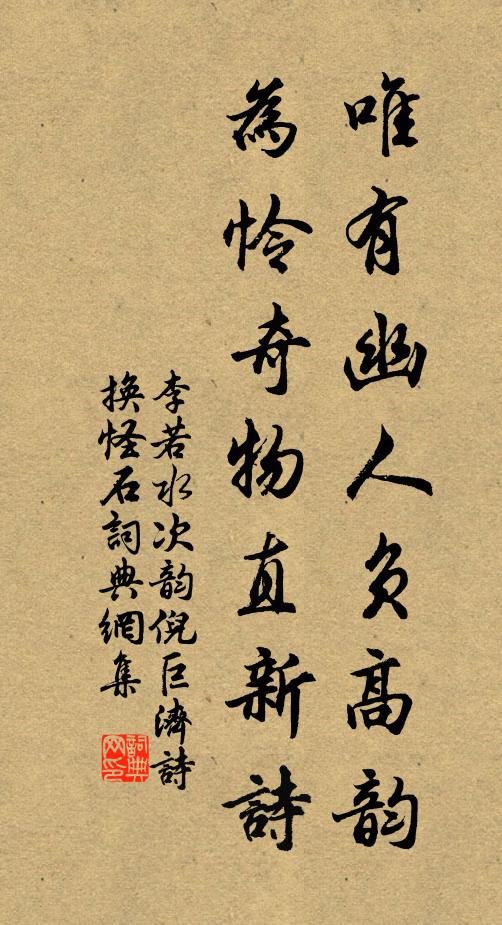 唯有幽人负高韵
為怜奇物直新詩
李若水次韵倪巨濟詩
换怪石詞典網集
詞典
网印